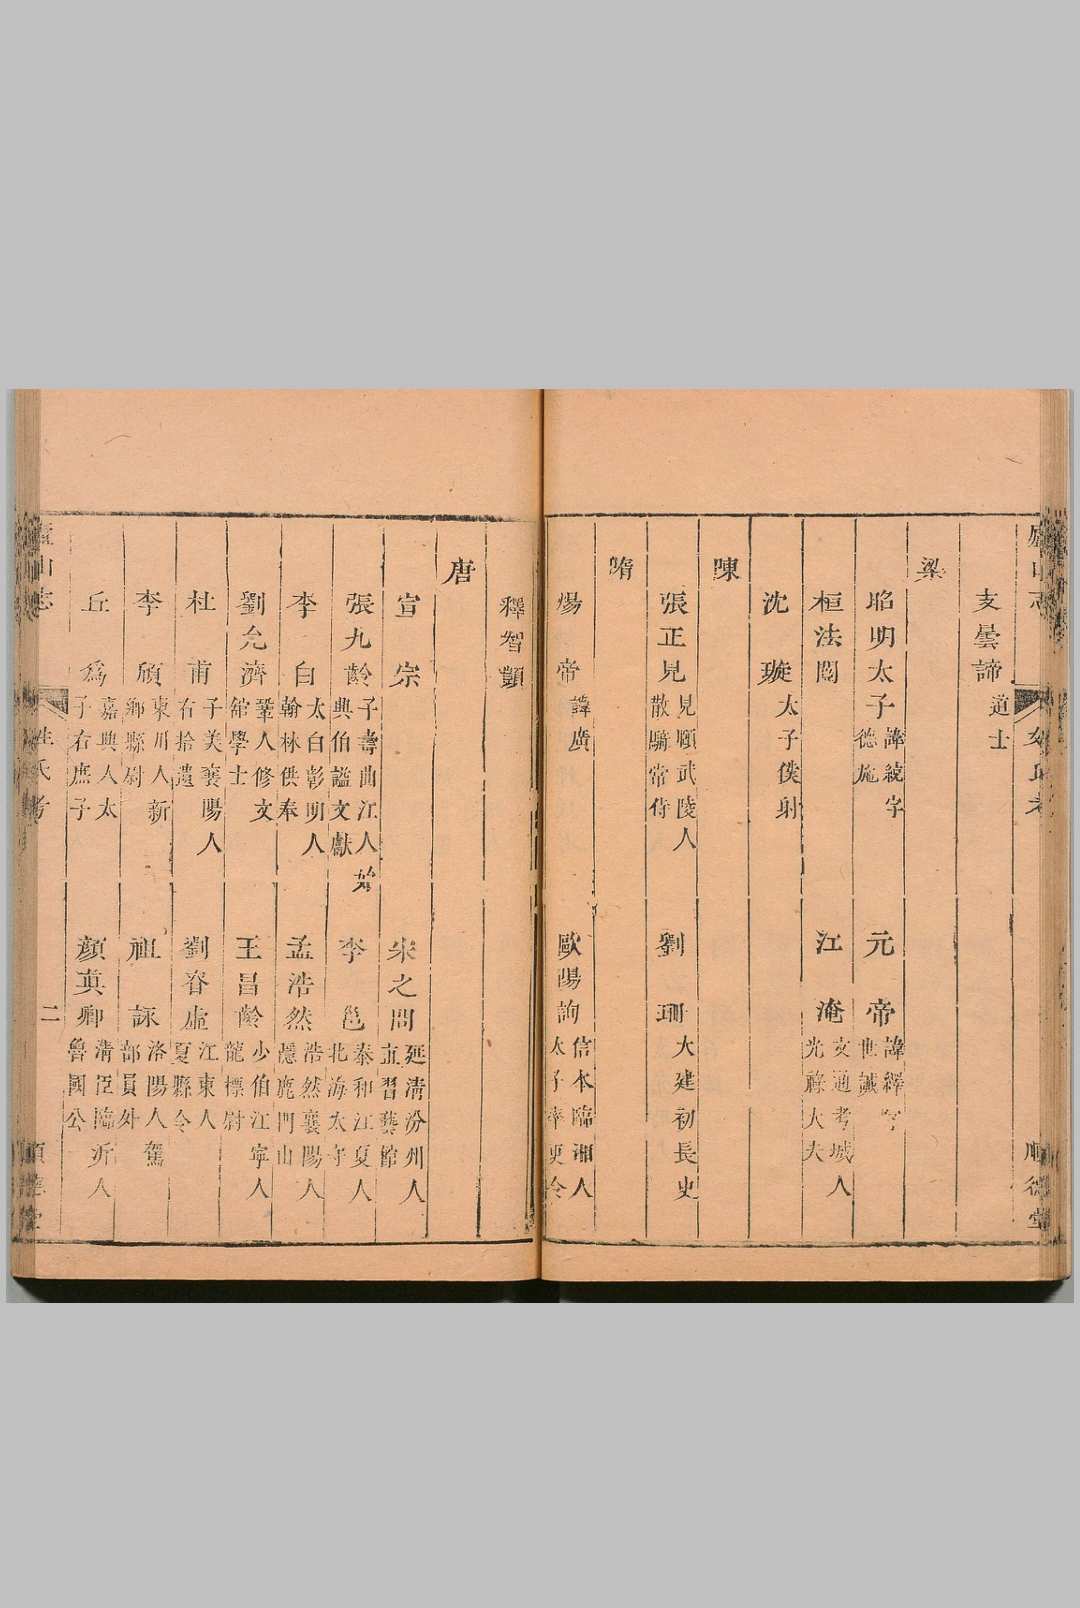 廬山志 姓氏考 順德堂
支曇諦道士
梁
昭明太子諱統字德施 元帝諱繹字世誠
桓法闓 江淹文通考城人光祿大夫
沈璇太子僕射
陳
張正見見頤武陵人散騎常侍 劉珊大建初長史
隋
煬帝諱廣 歐陽詢信本臨湘人太子率更令
釋智顗
唐
宣宗 宋之問延清汾州人直習藝館
張九齡子壽曲江人始興伯謚文獻 李邕泰和江夏人北海太守
李白太白彰明人翰林供奉 孟浩然浩然襄陽人隱鹿門山
劉允濟鞏人修文館學士 王昌齡少伯江寧人龍標尉
杜甫子美襄陽人右拾遺 劉眘虛江東人夏縣令
李頎東川人新鄉縣尉 祖詠洛陽人駕部員外
丘為嘉興人太子右庶子 顏真卿清臣臨沂人魯國公
廬山志 姓氏考 二 順德堂